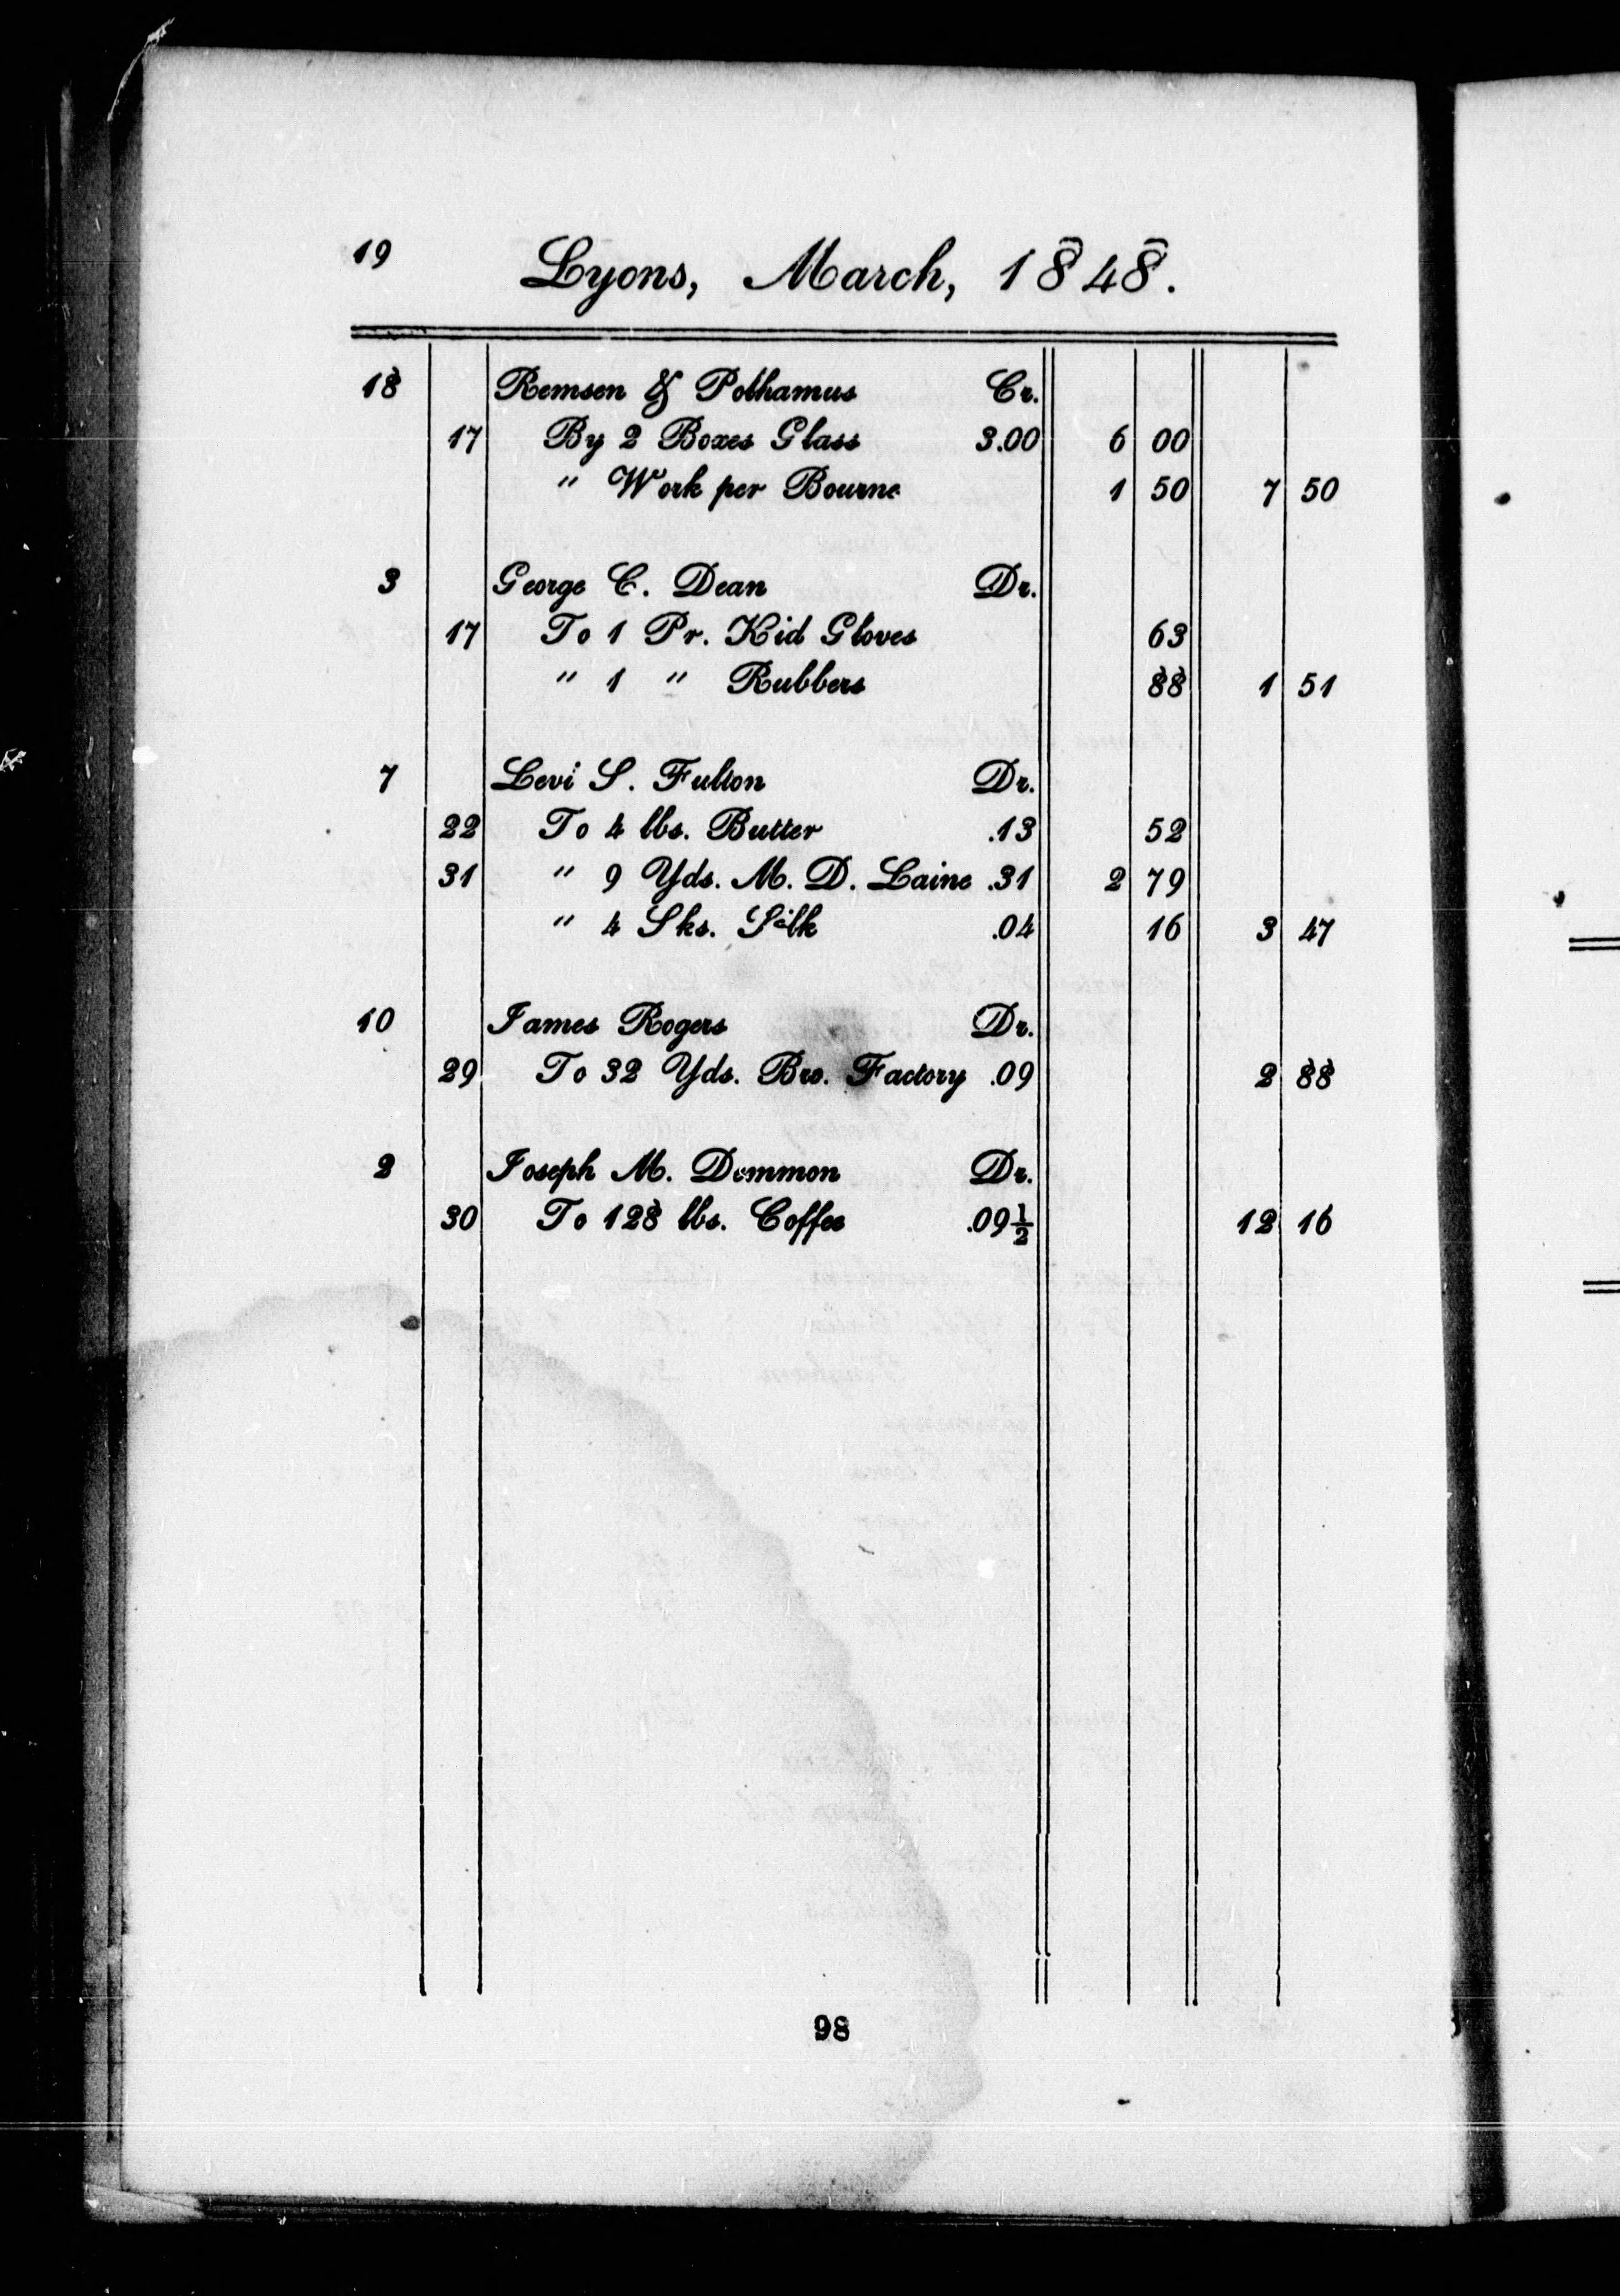 19
Lyons, March, 1848.
18 Remsen & Polhamus Cr.
17 By 2 Boxes Glass 3.00 6 00
" Work per Bourne 1 50 7 50
3 George C. Dean Dr.
17 To 1 Pr. Kid Gloves 63
" 1 " Rubbers 88 1 51
7 Levi S. Fulton Dr.
22 To 4 lbs. Butter .13 52
31 " 9 Yds. M. D. Laine .31 2 79
" 4 Sks. Silk .04 16 3 47
10 James Rogers Dr.
29 To 32 Yds. Bro. Factory .09 2 88
2 Joseph M. Demmon Dr.
30 To 128 lbs. Coffee .09½ 12 16
98